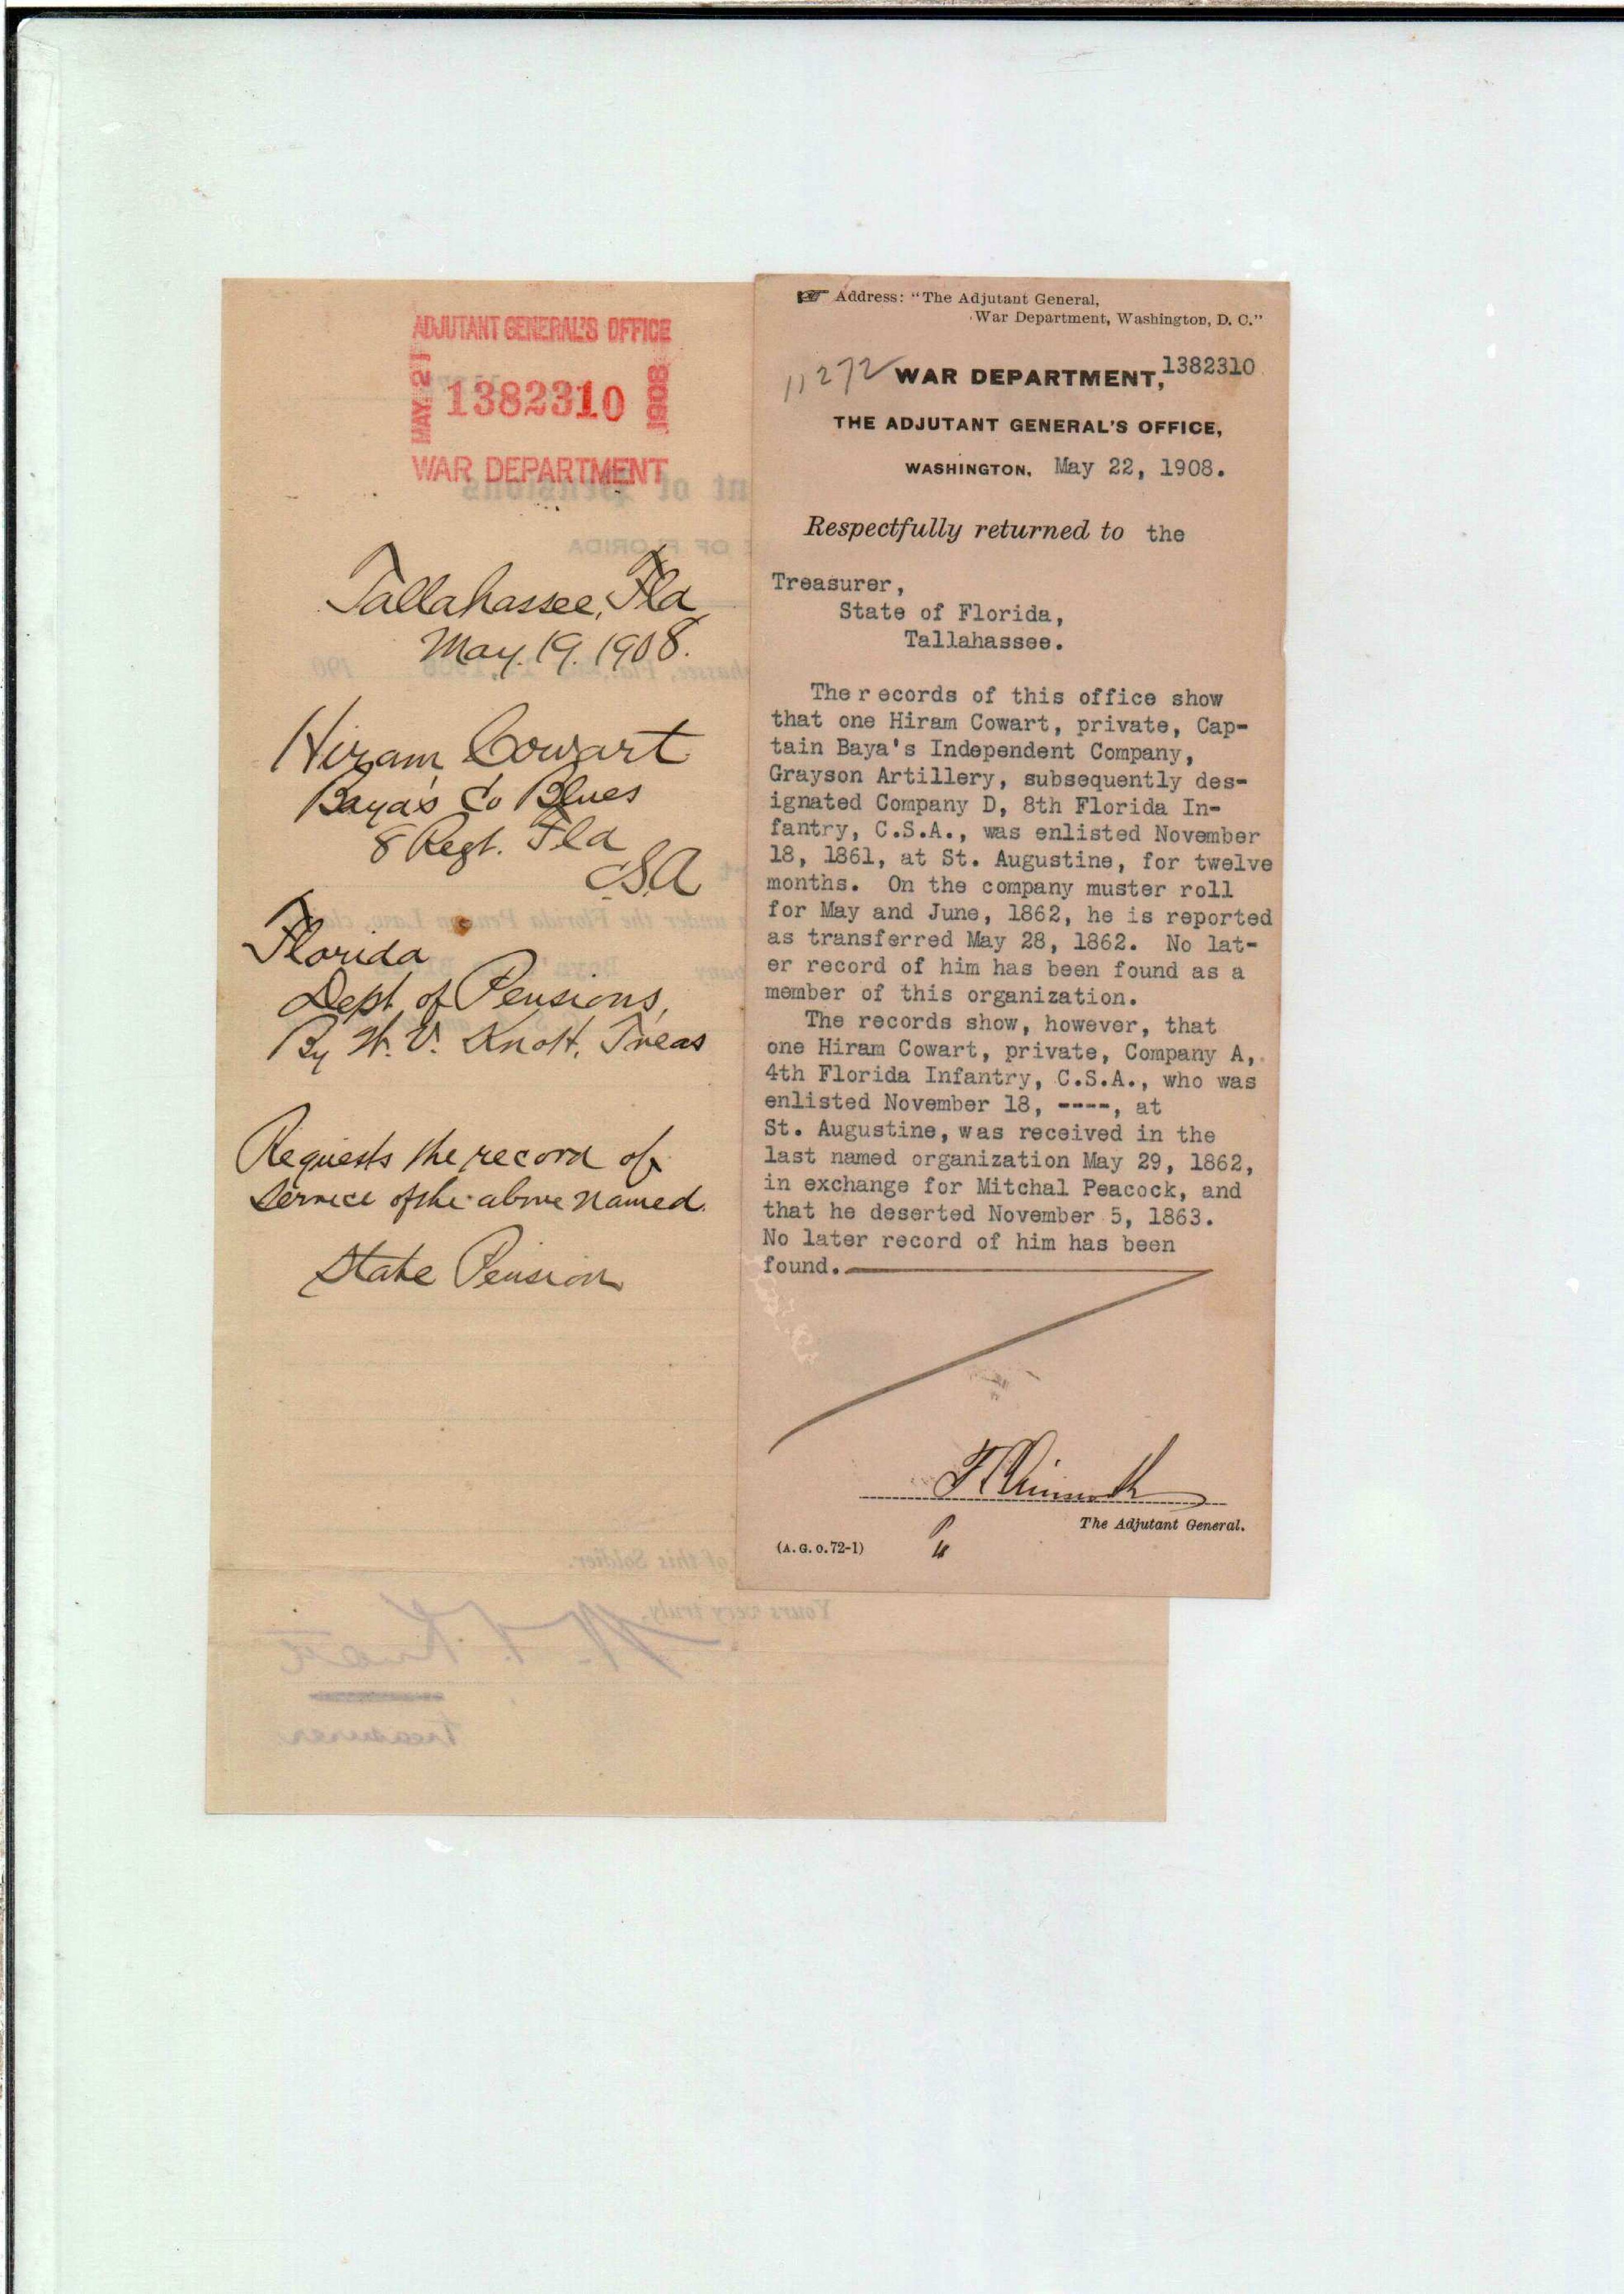 ADJUTANT GENERAL'S OFFICE
MAY 21 1382310 1908
WAR DEPARTMENT
Tallahassee, Fla
May. 19. 1908.
Hiram Cowart
Baya's Co Blues
8 Regt. Fla
C.S.A
Florida
Dept of Pensions,
By W. V. Knott, Treas
Requests the record of
service of the above named.
State Pension
of this Soldier.
Yours very truly,
W. V. Knott
Treasurer
Address: "The Adjutant General,
War Department, Washington, D. C."
11272 WAR DEPARTMENT, 1382310
THE ADJUTANT GENERAL'S OFFICE,
WASHINGTON, May 22, 1908.
Respectfully returned to the
Treasurer,
State of Florida,
Tallahassee.
The r ecords of this office show
that one Hiram Cowart, private, Cap-
tain Baya's Independent Company,
Grayson Artillery, subsequently des-
ignated Company D, 8th Florida In-
fantry, C.S.A., was enlisted November
18, 1861, at St. Augustine, for twelve
months. On the company muster roll
for May and June, 1862, he is reported
as transferred May 28, 1862. No lat-
er record of him has been found as a
member of this organization.
The records show, however, that
one Hiram Cowart, private, Company A,
4th Florida Infantry, C.S.A., who was
enlisted November 18, ----, at
St. Augustine, was received in the
last named organization May 29, 1862,
in exchange for Mitchal Peacock, and
that he deserted November 5, 1863.
No later record of him has been
found.
F C Ainsworth
The Adjutant General.
(A. G. O. 72-1)